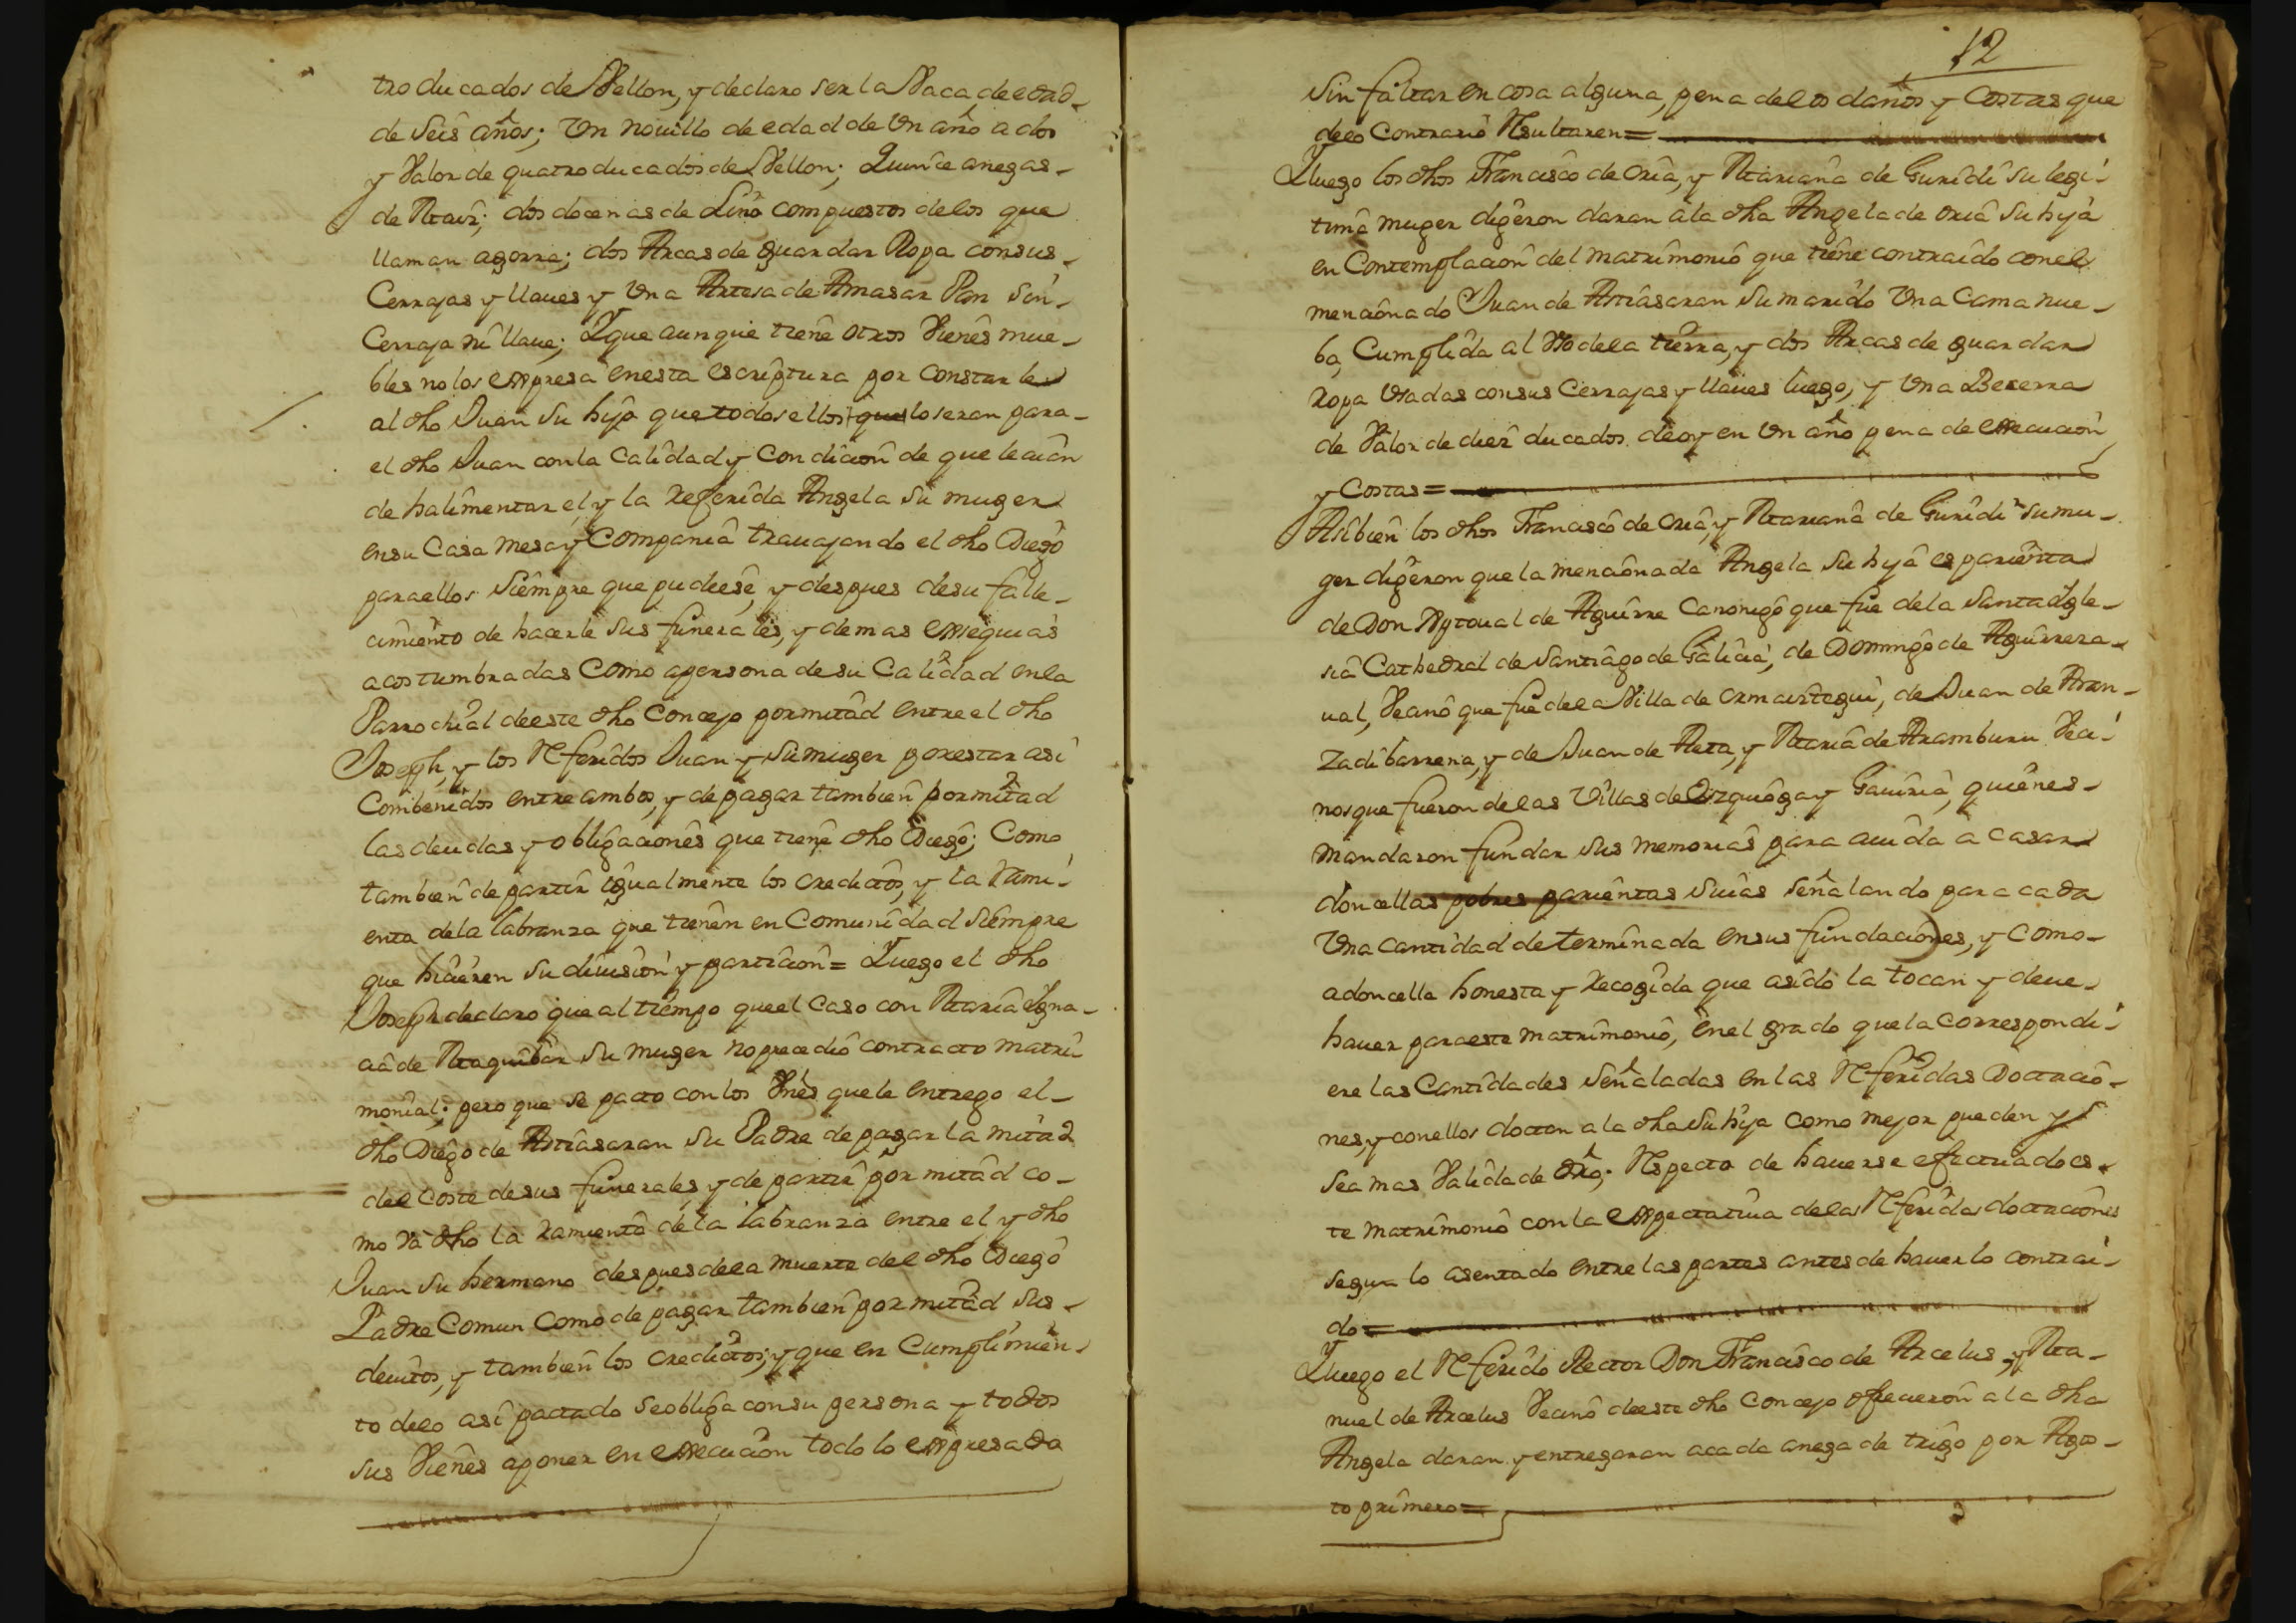 tro ducados de Vellon, y declaro ser la Vaca, de edad
de seis años; Un novillo de edad de Un año a dos
y Valor de quatro ducados de Vellon; Quince anegas
de Maiz; dos docenas de Lino compuestos de los que
llaman agorra; dos Arcas de guardar Ropa con sus
Cerrajas y llaves y Una Artesa de Amasar Pan sin
Cerraja ni llave; Y que aunque tiene otros Vienes mue-
bles no los expresa en esta escriptura por constarle
al dho Juan su hijo que todos ellos que lo seran para
el dho Juan con la Calidad y Condicion de que le aian
de halimentar el, y la referida Angela su muger
en su Casa Mesa y Compania travajando el dho Diego
para ellos siempre que pudiese, y despues de su falle-
cimiento de hacerle sus funerales, y demas exsequias
acostumbradas Como a persona de su Calidad en la
Parrochial de este dho Concejo por mitad entre el dho
Joseph, y los Referidos Juan y su muger por estar asi
Combenidos entre ambos, y de pagar tambien por mitad
las deudas y obligaciones que tiene dho Diego; Como
tambien de partir igualmente los creditos, y la rami-
enta de la labranza que tienen en Comunidad siempre
que hicieren su division y particion = Y luego el dho
Joseph declaro que al tiempo que el Caso con Maria Igna-
cia de Maquibar su muger no precedio contracto matri-
monial; pero que se pacto con los Vnes que le entrego el
dho Diego de Artiasaran su Padre de pagar la mitad
del coste de sus funerales, y de partir por mitad co-
mo va dho la ramienta de la labranza entre el, y dho
Juan su hermano despues de la muerte del dho Diego
Padre Comun Como de pagar tambien por mitad sus
devitos, y tambien los creditos; y que en Cumplimien-
to de lo asi pactado se obliga con su persona y todos
sus Vienes a poner en execucion todo lo expresado
12
Sin faltar en cosa alguna, pena de los daños y Costas que
de lo Contrario Resultaren =
Y luego los dhos Francisco de Oria, y Mariana de Guridi su legi-
tima muger digeron daran a la dha Angela de Oria su hija
en Contemplacion del matrimonio que tiene contraido con el
mencionado Juan de Artiasaran su marido Una Cama nue-
ba, Cumplida al Uso de la tierra, y dos Arcas de guardar
ropa Usadas con sus Cerrajas y llaves luego, y Una Becerra
de Valor de diez ducados de oy en Un año pena de execucion
y Costas =
Asibien los dhos Francisco de Oria, y Mariana de Guridi su mu-
ger digeron que la mencionada Angela su hija es parienta
de Don Xptoual de Aguirre Canonigo que fue de la Santa Igle-
sia Cathedral de Santiago de Galicia, de Domingo de Aguirreza-
ual, Vecino que fue de la Villa de Ormaiztegui, de Juan de Aran-
zadibarrena, y de Juan de Aleta, y Maria de Aramburu Veci-
nos que fueron de las Villas de Ezquioga y Gaviria, quienes
mandaron fundar sus memorias para aiuda a casar
doncellas pobres parientas suias señalando para cada
Una cantidad determinada en sus fundaciones, y como
a doncella honesta y recogida que a sido la tocan y deue
hauer para este matrimonio, en el grado que la correspondi-
ere las Cantidades señaladas en las Referidas Doctacio-
nes, y con ellos doctan a la dha su hija como mejor pueden y
sea mas Valida de dro; Respecto de hauerse efectuado es-
te matrimonio con la expectativa de las Referidas doctaciones
segun lo asentado entre las partes antes de hauerlo contrai-
do =
Y luego el Referido Rector Don Francisco de Arcelus, y Ma-
nuel de Arcelus Vecino de este dho Concejo ofrecieron a la dha
Angela daran y entregaran a cada anega de trigo por Agos-
to primero =